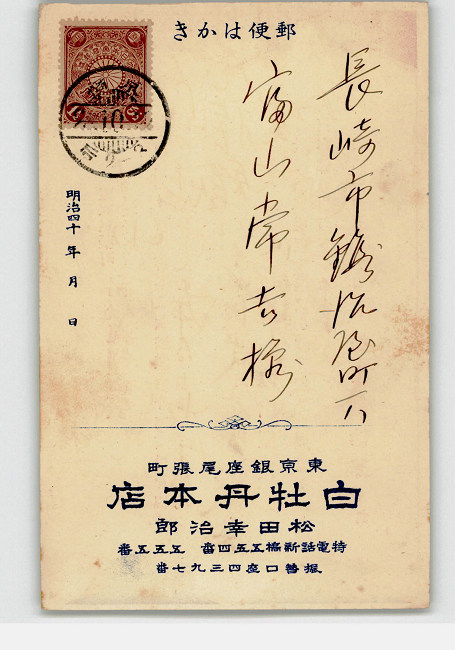 郵便はかき
長崎市鍛冶屋町一八
富山常吉様
明治四十年月日
東京銀座尾張町
白牡丹本店
松田幸治郎
特電話新橋五五四番 五五五五番
振替口座四三九七番